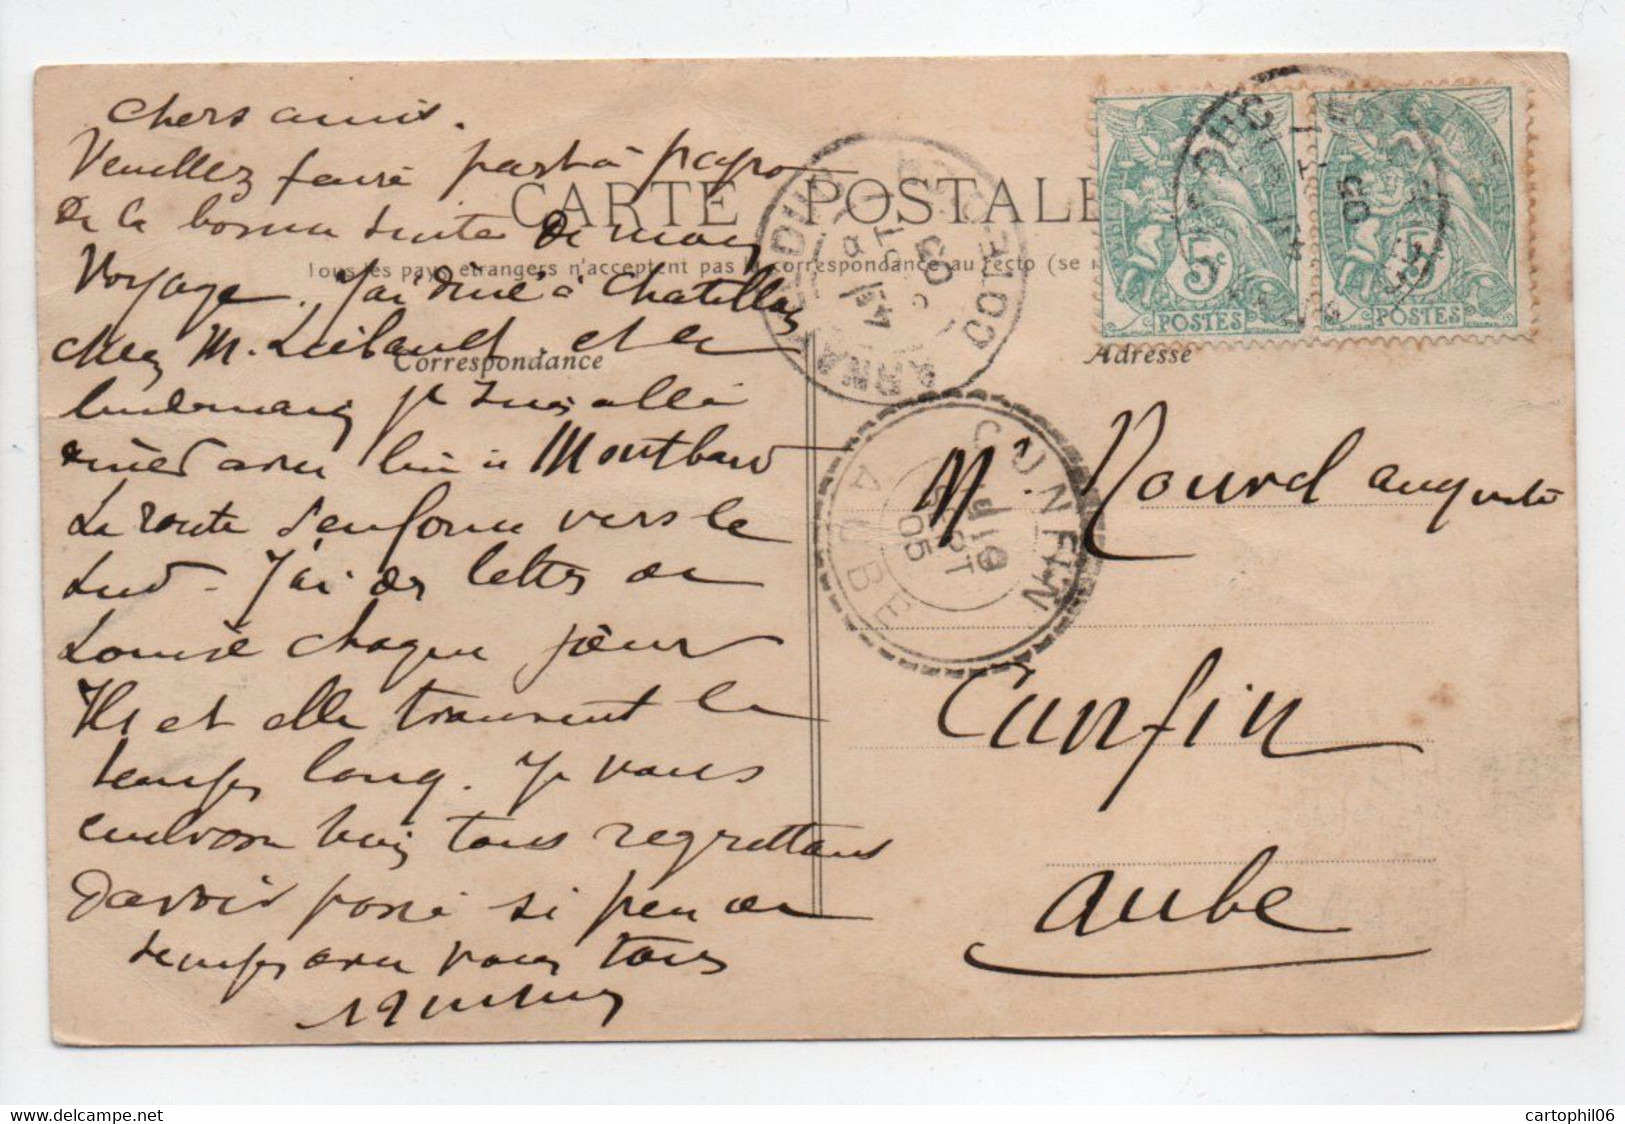 chers amis.
Veuillez faire part à
de la bonne suite de mon
Voyage. J'ai diné à Chatillon
chez M. et le
lendemain je suis allé
diner avec lui à Montbard
La route s'enfonce vers le
Sud - J'ai des lettres de
Louise chaque jour
Ils et elle trouvent le
temps long. Je vous
embrasse bien tous regrettant
d'avoir passé si peu de
temps avec vous tous
CARTE POSTALE
Tous les pays étrangers n'acceptent pas la correspondance au recto (se
Correspondance
Adresse
5c
POSTES
5c
POSTES
ARNAY-LE-DUC
COTE-D'OR
CUNFIN
AUBE
SEPT
05
M. Nourd auguste
Cunfin
aube
cartophil06